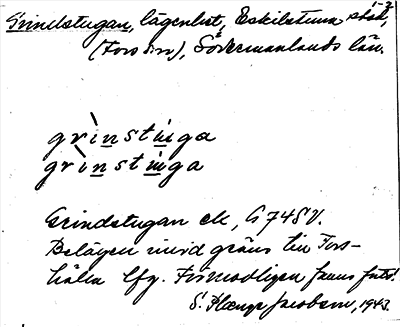 1-2
Grindstugan, lägenhet, Eskilstuna stad,
(Fors sn), Södermanlands län.
grinstuga
grinstuga
Grindstugan ek, G 74 SV.
Belägen invid gräns till Fors-
hälla Förmodligen fanns
S. 1943.